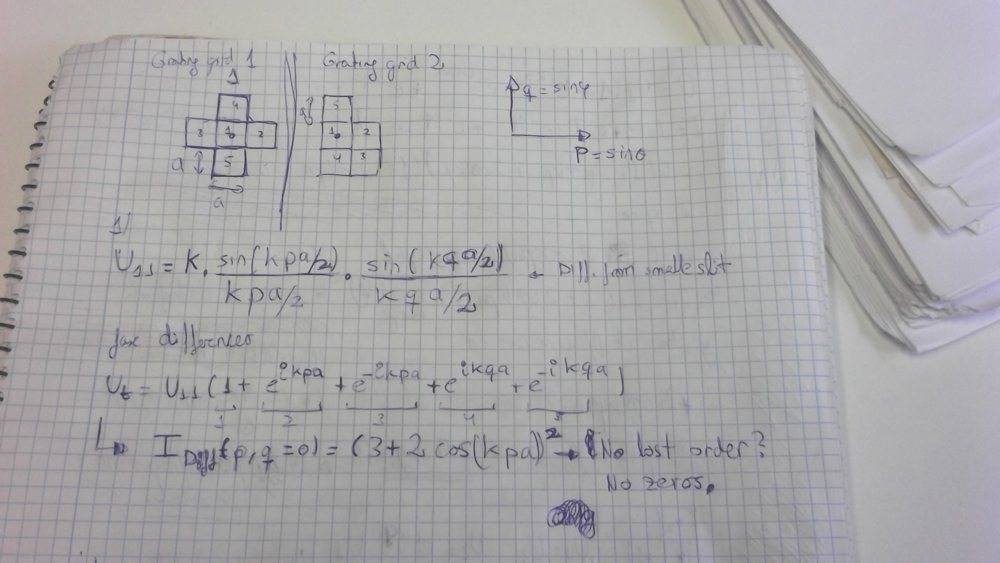 Grating grid 1
Grating grid 2
4
3 1 2
5
a
a
5
1 2
4 3
a
q = sinφ
p = sinθ
1)
U₁₁ = K · sin(kpa/2) / kpa/2 · sin(kqa/2) / kqa/2 ← Diff. from small slot
fase differences
Uₜ = U₁₁ (1 + e^{ikpa} + e^{-ikpa} + e^{ikqa} + e^{-ikqa})
1 2 3 4 5
↳ I_Diff(p, q = 0) = (3 + 2 cos(kpa))² → No lost order?
No zeros.